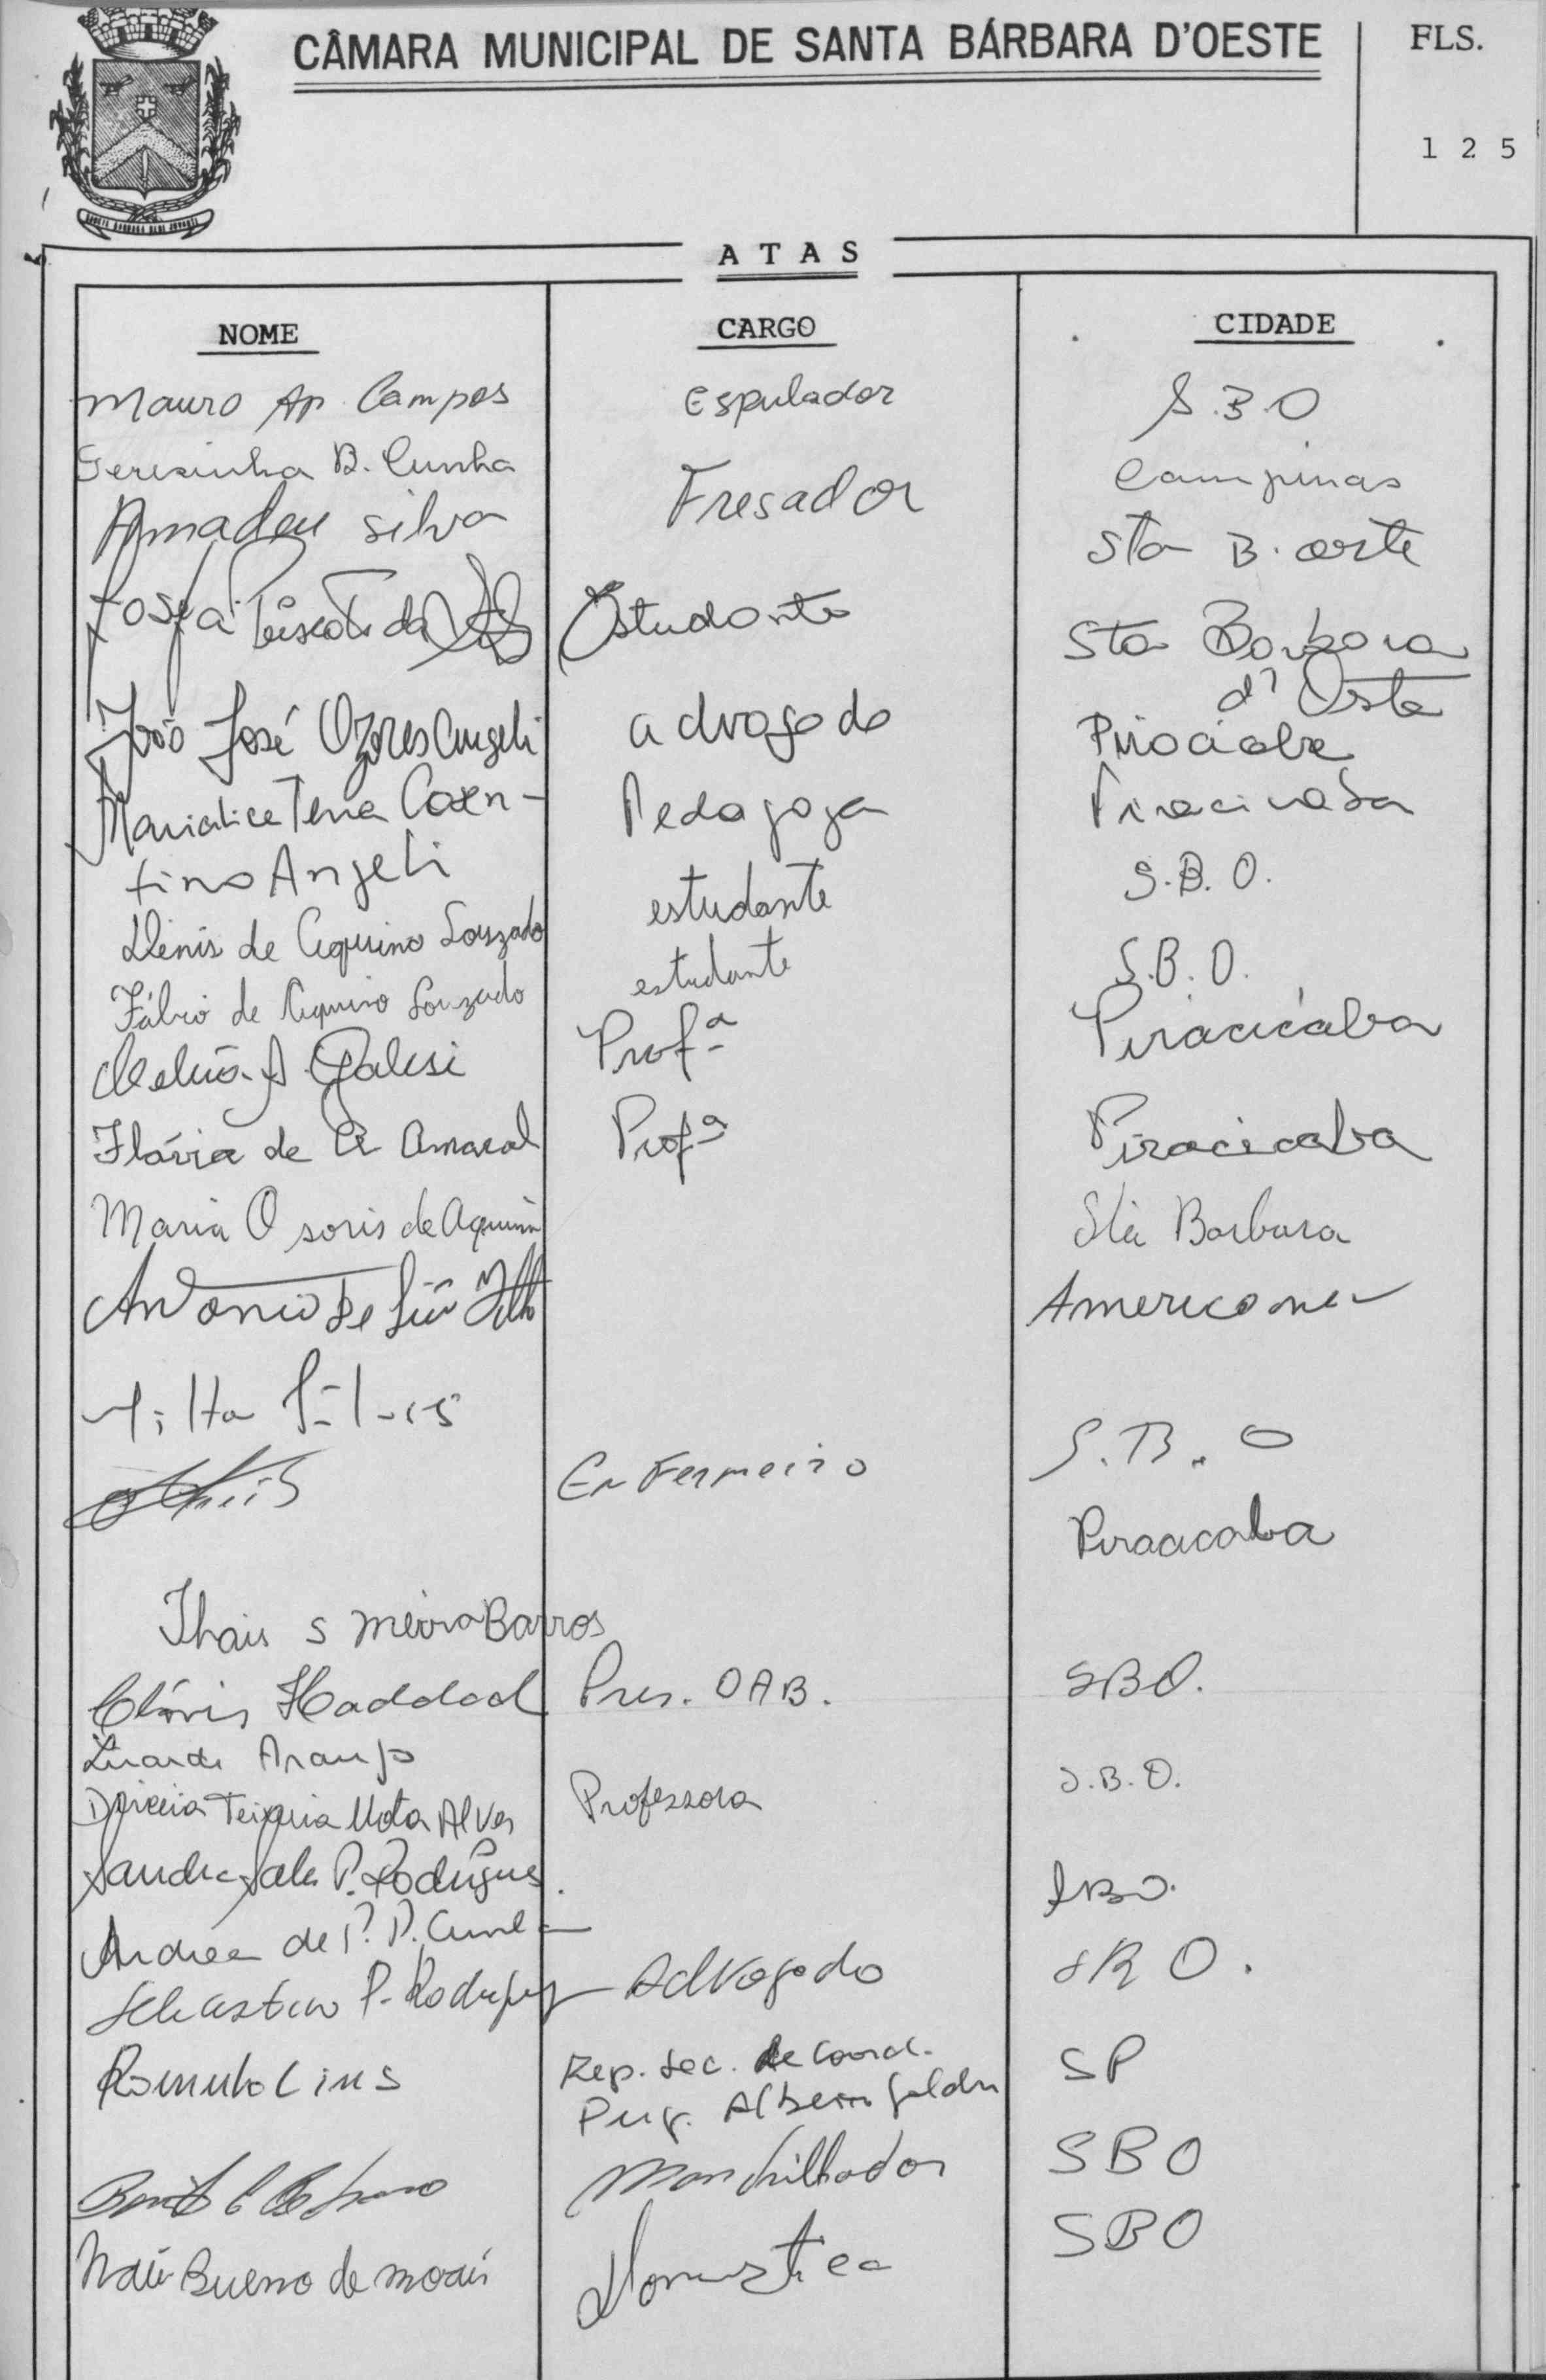 CÂMARA MUNICIPAL DE SANTA BÁRBARA D'OESTE
FLS.
1 2 5
A T A S
NOME CARGO CIDADE
Mauro Ap. Campos Espulador S.B.O
Teresinha B. Cunha Campinas
Amadeu Silva Fresador Sta B. oeste
Estudante Sta Barbara d'Oeste
João José Ozores Angeli advogado Piracicaba
Maria Alice Tena Cosen- Pedagoga Piracicaba
tino Angeli
Denis de Aquino Louzado estudante S.B.O.
Fábio de Aquino Louzado estudante S.B.O.
A. Galesi Profª Piracicaba
Flávia de A Amaral Profª Piracicaba
Maria Osoris de Aquino Sta Barbara
Antonio de Filho Americana
Enfermeiro S.B.O
Piracicaba
Thais S Meira Barros
Clóvis Haddad Pres. OAB. SBO.
Araujo S.B.O.
Dirceia Teixeira Mota Alves Professora
Sandra Sala P. Rodrigues. SBO.
Andrea de P. P. Cunha
Sebastião P. Rodrigues Advogado SBO.
Romulo Lins Rep. Sec. de Coord. SP
Alberto Goldm
Mandrilhador SBO
Bueno de Morais Domestica SBO